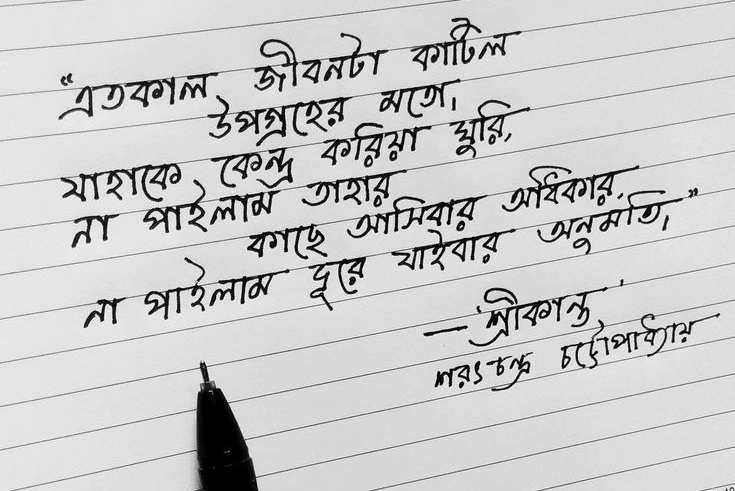 “এতকাল জীবনটা কাটিল
উপগ্রহের মতো।
যাহাকে কেন্দ্র করিয়া ঘুরি,
না পাইলাম তাহার
কাছে আসিবার অধিকার,
না পাইলাম দূরে যাইবার অনুমতি।”
— 'শ্রীকান্ত'
শরৎচন্দ্র চট্টোপাধ্যায়